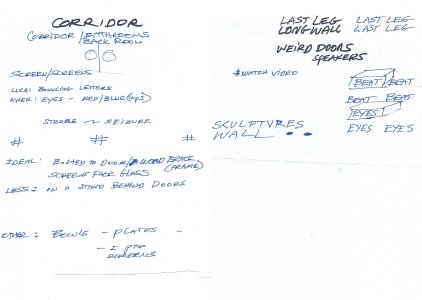 CORRIDOR
CORRIDOR/BATHROOMS
BACK ROOM
SCREEN/SCREENS
LUCA: BOUNCING LETTERS
EYES - RED/BLUE
STROBE ~ SEIZURE
# # #
IDEAL: BOLTED TO DOOR/WOOD BRACE
(FRAME)
SCREENS FACE GLASS
LESS: ON A STAND BEHIND DOORS
OTHER: BOWLS - PLATES -
- I
SCREENS
LAST LEG LAST LEG
LONG WALL LAST LEG
WEIRD DOORS
SPEAKERS
*WATCH VIDEO
BEAT BEAT
BEAT BEAT
EYES
EYES EYES
SKULPTURES
WALL